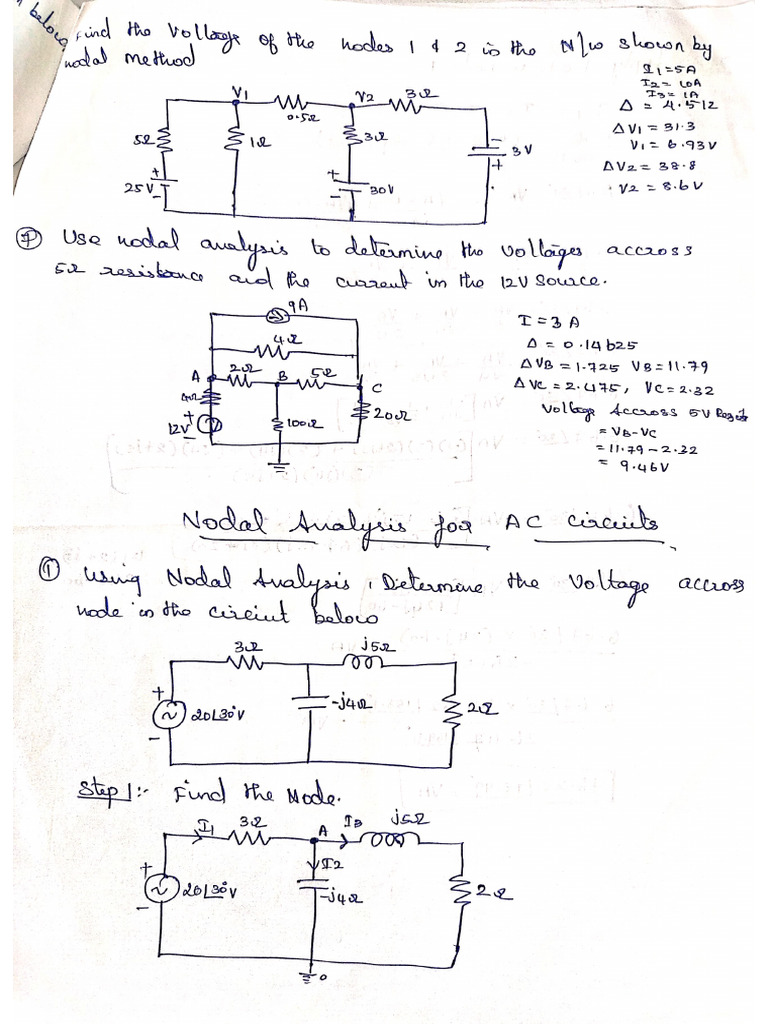 below
Find the Voltage of the nodes 1 & 2 in the N/w shown by
nodal method
I1=5A
I2=10A
I3=1A
Δ = 4.512
ΔV1 = 31.3
V1 = 6.93V
ΔV2 = 38.8
V2 = 8.6V
V1 V2 3Ω
0.5Ω
5Ω 1Ω 3Ω
+ + − 3V
25V − 30V − +
Use nodal analysis to determine the voltages accross
5Ω resistance and the current in the 12V source.
9A
4Ω
A 2Ω B 5Ω C
4Ω 100Ω 20Ω
12V + −
I = 3 A
Δ = 0.14625
ΔVB = 1.725 VB = 11.79
ΔVC = 2.475, VC = 2.32
Voltage Accross 5V
= VB-VC
= 11.79 - 2.32
= 9.46V
Nodal Analysis for AC circuits
① Using Nodal Analysis, Determine the Voltage accross
node in the circiut below
3Ω j5Ω
+ 20∠30°V − -j4Ω 2Ω
Step 1:- Find the Node.
I1 3Ω A I3 j5Ω
I2
+ 20∠30°V − -j4Ω 2Ω
0